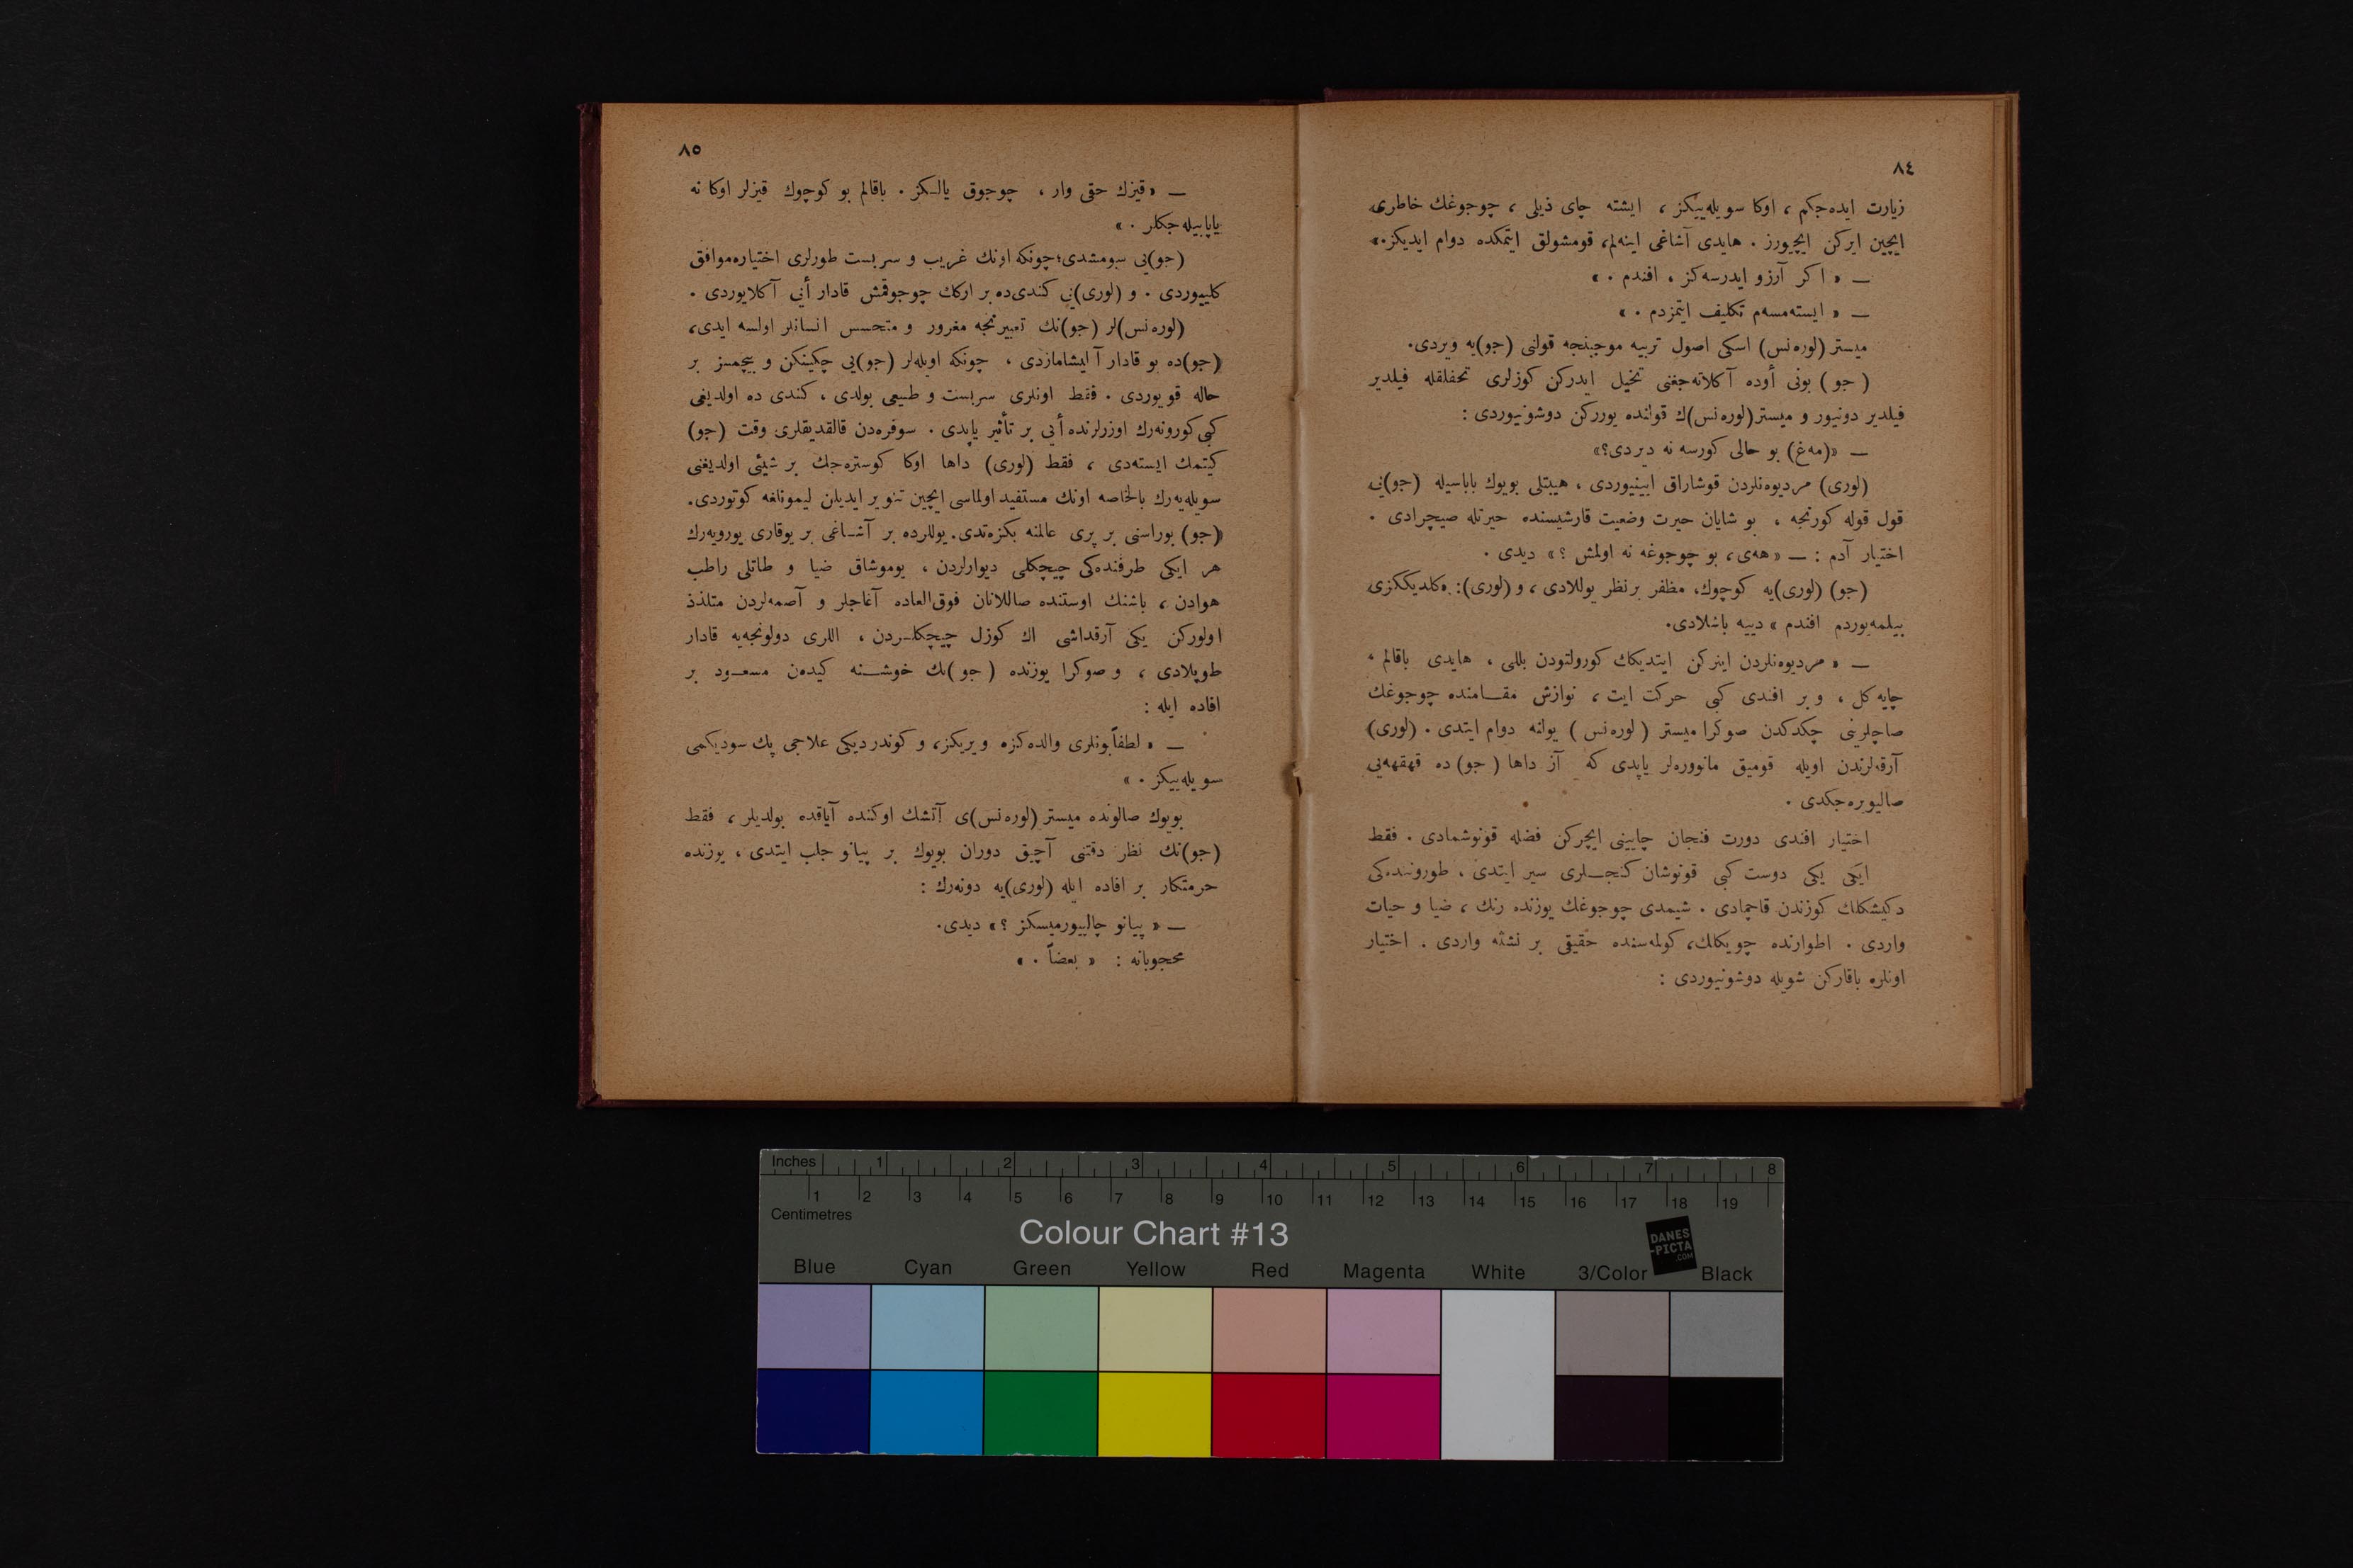 ٨٤
زيارت ايده‌جكم ، اوكا سويله‌ييكز ، ايشته چاى ذيلى ، چوجوغك خاطرى
ايچين ايركن ايچيورز . هايدى آشاغى اينه‌لم، قومشولق ايتمكده دوام ايديكز.»
— « اكر آرزو ايدرسه‌كز ، افندم . »
— « ايسته‌مسه‌م تكليف ايتمزدم . »
ميستر (لوره‌نس) اسكى اصول تربيه موجبنجه قولنى (جو)يه ويردى.
( جو ) بونى أوده آكلاته‌جغنى تخيل ايدركن كوزلرى تحفلقله فيلدير
فيلدير دونيور و ميستر(لوره‌نس)ك قولنده يورركن دوشونيوردى :
— «(مه‌غ) بو حالى كورسه نه ديردى؟»
(لورى) مرديوه‌نلردن قوشاراق ايينيوردى ، هيبتلى بويوك باباسيله (جو)يى
قول قوله كورنجه ، بو شايان حيرت وضعيت قارشيسنده حيرتله صيچرادى .
اختيار آدم : — « هه‌ى، بو چوجوغه نه اولمش ؟ » ديدى .
(جو) (لورى)يه كوچوك، مظفر برنظر يوللادى ، و (لورى): «كلديككزى
بيلمه‌يوردم افندم » دييه باشلادى.
— « مرديوه‌نلردن اينركن ايتديكك كورولتودن بللى ، هايدى باقالم
چايه كل ، و بر افندى كبى حركت ايت ، نوازش مقـامنده چوجوغك
صاچلرينى چكدكدن صوكرا ميستر ( لوره‌نس ) يولنه دوام ايتدى . (لورى)
آرقه‌لرندن اويله قوميق مانووره‌لر ياپدى كه آز داها ( جو) ده قهقهه‌يى
صاليويره‌جكدى .
اختيار افندى دورت فنجان چايينى ايچركن فضله قونوشمادى . فقط
ايكى يكى دوست كبى قونوشان كنجـلرى سير ايتدى ، طورونند‌ه‌كى
دكيشكلك كوزندن قاچمادى . شيمدى چوجوغك يوزنده رنك ، ضيا و حيات
واردى . اطوارنده چويكلك، كولمه‌سنده حقيقى بر نشئه واردى . اختيار
اونلره باقاركن شويله دوشونيوردى :
٨٥
— « قيزك حقى وار ، چوجوق يالـكز . باقالم بو كوچوك قيزلر اوكا نه
ياپابيله‌جكلر . »
(جو)يى سومشدى؛چونكه اونك غريب و سربست طورلرى اختياره‌موافق
كلييوردى . و (لورى)يى كندى‌ده بر اركك چوجوقمش قادار أيى آكلايوردى .
(لوره‌نس)لر (جو)نك تعبيرنجه مغرور و متحسس انسانلر اولسه ايدى،
(جو)ده بو قادار آليشامازدى ، چونكه اويله‌لر (جو)يى چكينكن و بيچمسز بر
حاله قويوردى . فقط اونلرى سربست و طبيعى بولدى ، كندى ده اولديغى
كبى كورونه‌رك اوزرلرنده أيى بر تأثير ياپدى . سوفره‌دن قالقديقلرى وقت (جو)
كيتمك ايسته‌دى ، فقط (لورى) داها اوكا كوستره‌جك بر شيئى اولديغنى
سويله‌يه‌رك بالخاصه اونك مستفيد اولماسى ايچين تنوير ايديلن ليمونلغه كوتوردى.
(جو) بوراسنى بر پرى عالمنه بكزه‌تدى. يوللرده بر آشـاغى بر يوقارى يورويه‌رك
هر ايكى طرفنده‌كى چيچكلى ديوارلردن ، يوموشاق ضيا و طاتلى راطب
هوادن ، باشنك اوستنده صاللانان فوق‌العاده آغاجلر و آصمه‌لردن متلذذ
اولوركن يكى آرقداشى اك كوزل چيچكلـردن ، اللرى دولونجه‌يه قادار
طوپلادى ، و صوكرا يوزنده ( جو )نك خوشـنه كيده‌ن مسعـود بر
افاده ايله :
— « لطفاً بونلرى والده‌كزه ويريكز، و كوندرديكى علاجى پك سوديكمى
سويله‌ييكز . »
بويوك صالونده ميستر (لوره‌نس)ى آتشك اوكنده آياقده بولديلر ، فقط
(جو)نك نظر دقتنى آچيق دوران بويوك بر پيانو جلب ايتدى ، يوزنده
حرمتكار بر افاده ايله (لورى)يه دونه‌رك :
— « پيانو چالييورميسكز ؟ » ديدى.
محجوبانه : « بعضاً . »
Inches 1 2 3 4 5 6 7 8
1 2 3 4 5 6 7 8 9 10 11 12 13 14 15 16 17 18 19
Centimetres
Colour Chart #13
DANES
-PICTA
.COM
Blue Cyan Green Yellow Red Magenta White 3/Color Black